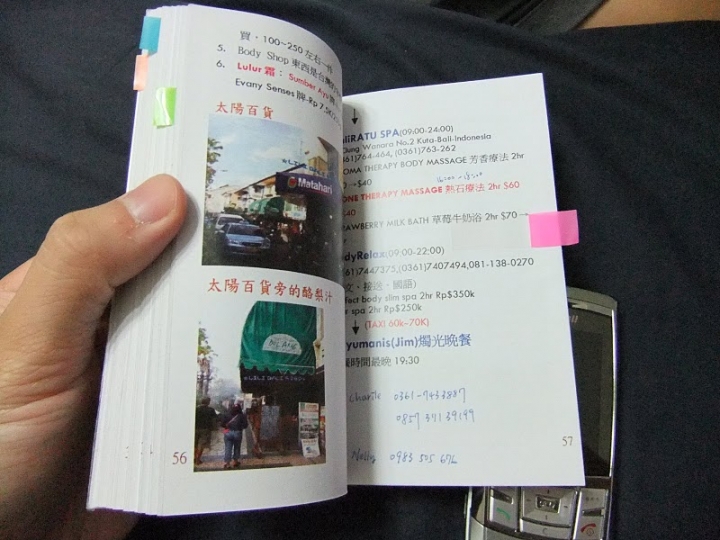 買，100~250 左右一件
5. Body Shop 東西是台灣的
6. Lulur 霜： Sumber Ayu
Evany Senses 牌-Rp 7.5K
太陽百貨
Matahari
太陽百貨旁的酪梨汁
56
RATU SPA(09:00-24:00)
Gung Wanara No.2 Kuta-Bali-Indonesia
61)764-464, (0361)763-262
OMA THERAPY BODY MASSAGE 芳香療法 2hr
0 →$40
ONE THERAPY MASSAGE 熱石療法 2hr $60
40
RAWBERRY MILK BATH 草莓牛奶浴 2hr $70→
dyRelax(09:00-22:00)
61)7447375,(0361)7407494,081-138-0270
文，接送，國語)
fect body slim spa 2hr Rp$350k
e spa 2hr Rp$250k
(TAXI 60k~70K)
yumanis(Jim)燭光晚餐
時間最晚 19:30
0361-7433887
0983 505 676
57